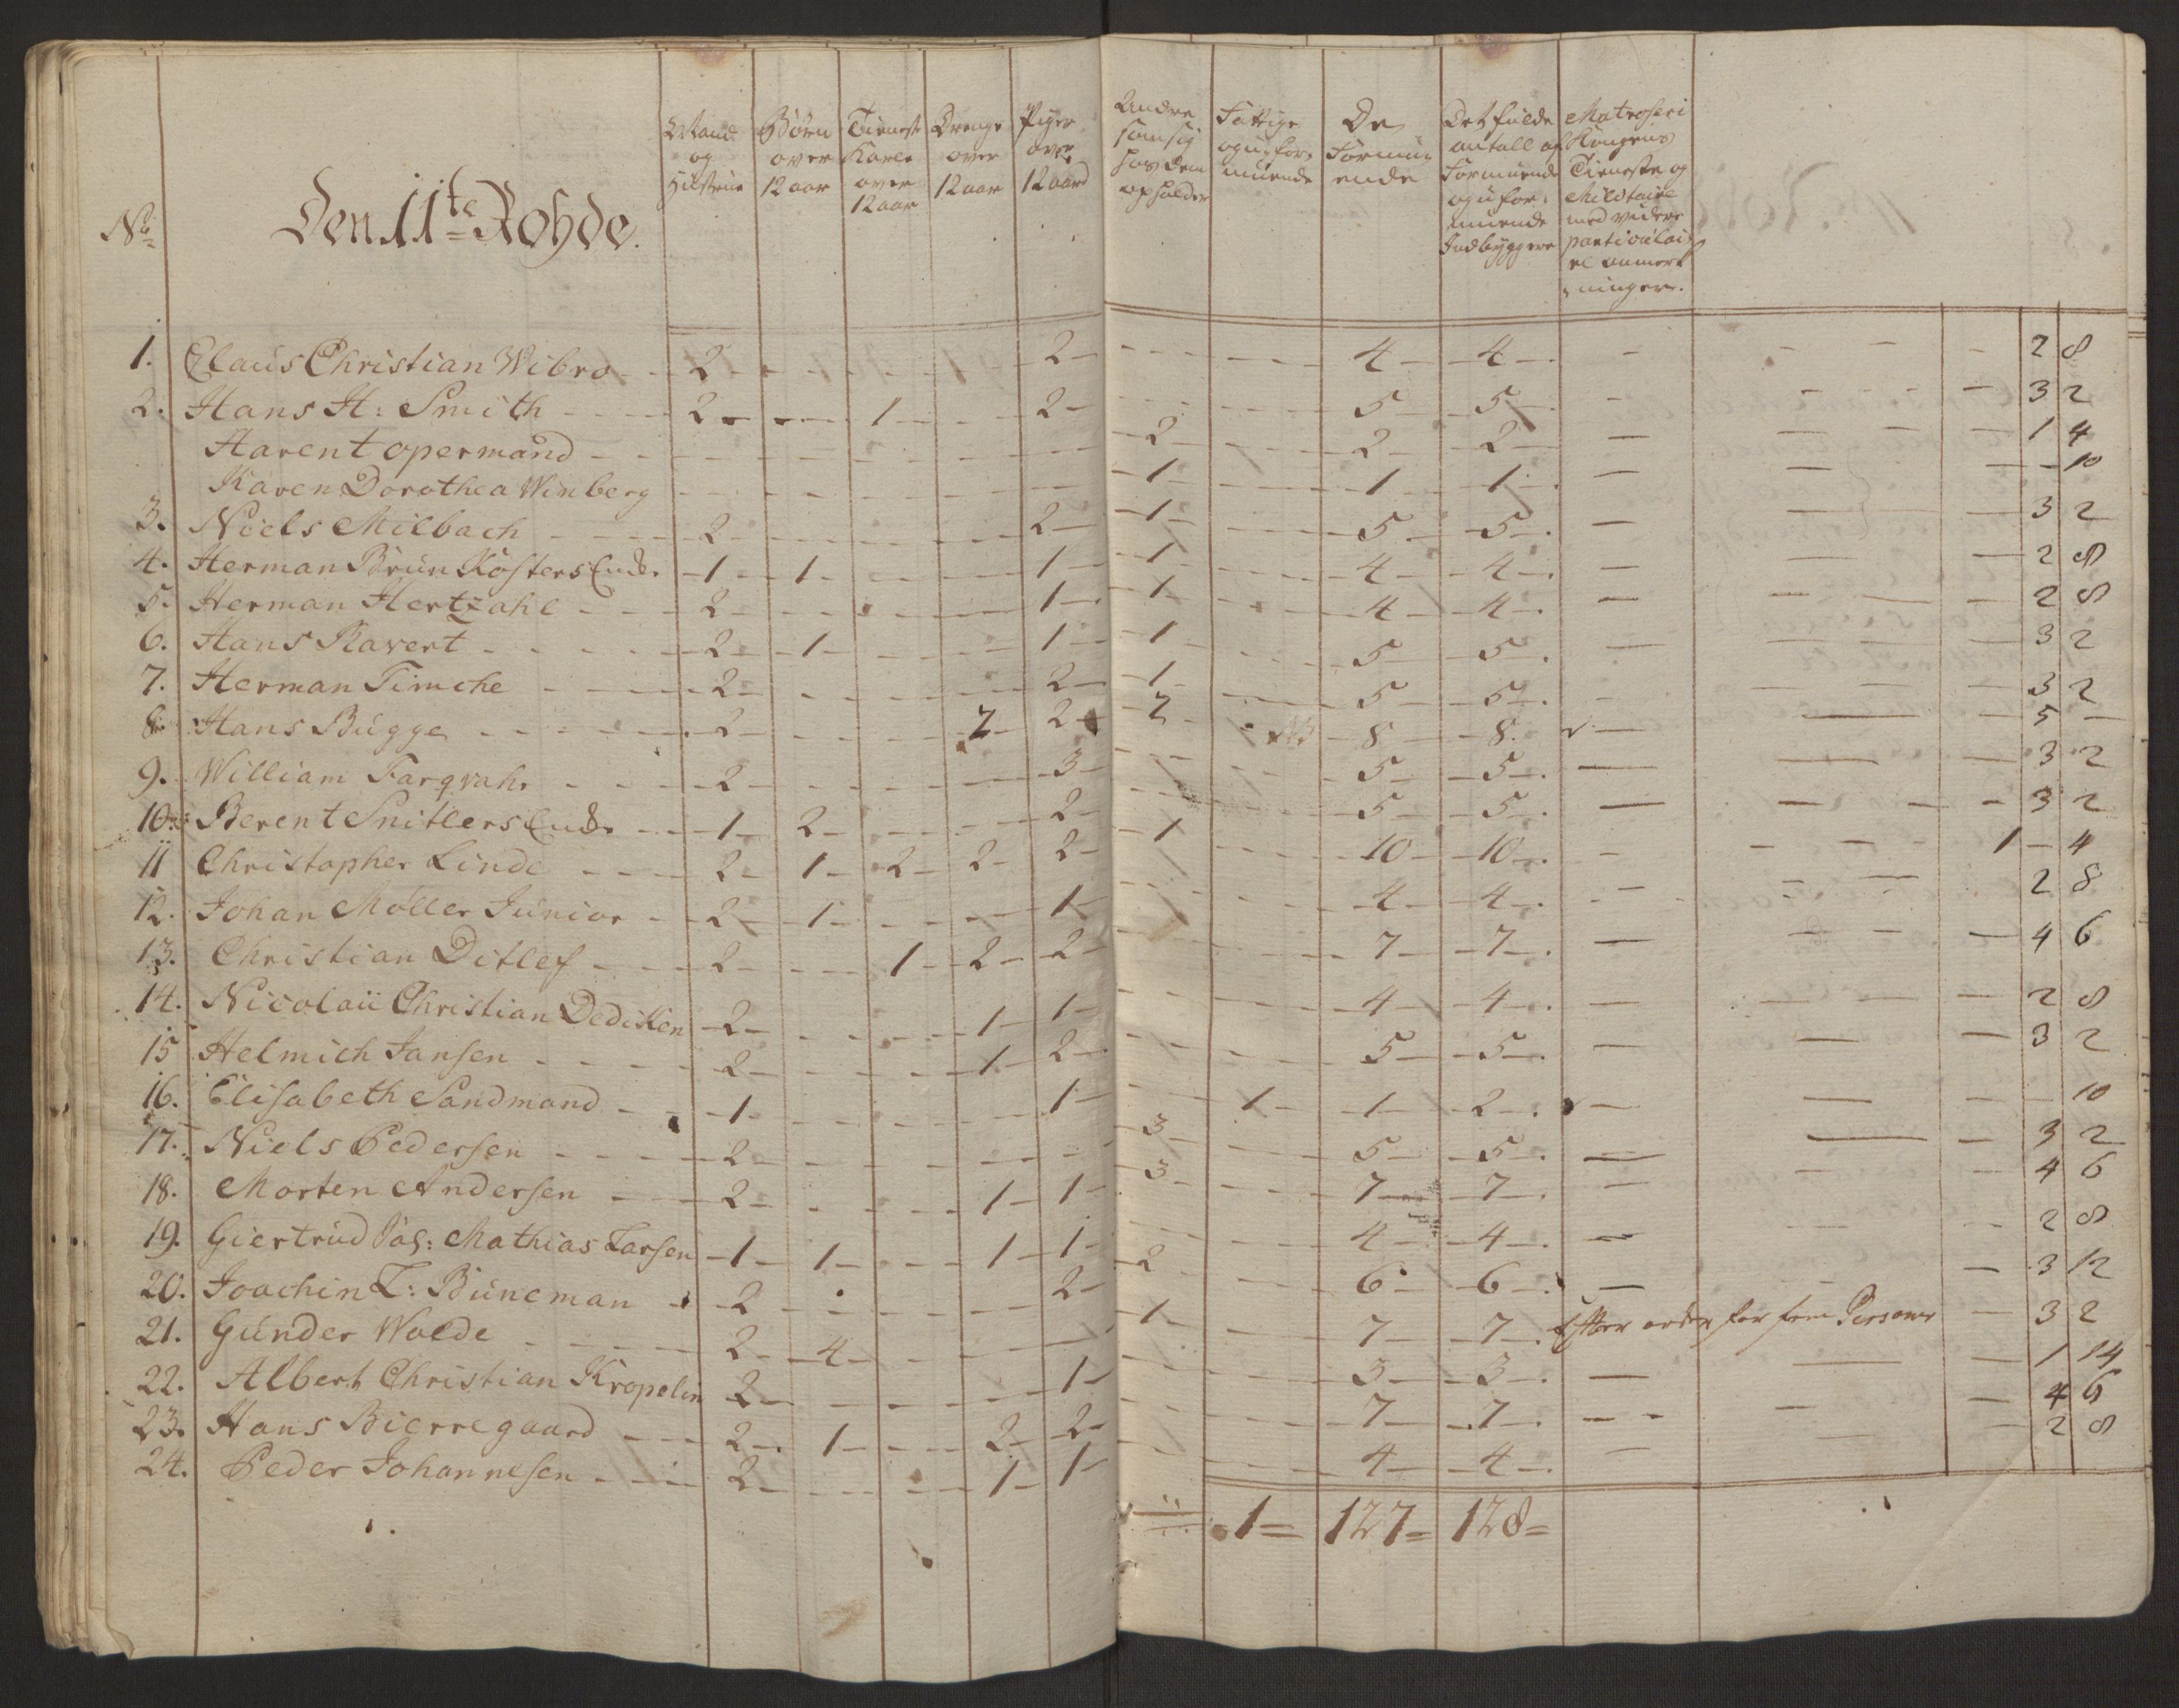 No
Den 11te Rohde.
Mand og Hustrue
Børn over 12 aar
Tieneste Karle over 12 aar
Drenge over 12 aar
Piger over 12 aar
Andre som sig hos dem opholder
Fattige og uformuende
De Formuende
Det fulde antall af Formuende og uformuende Indbyggere
Matroser i Kongens Tieneste og Militaire med videre particulaire anmerkninger.
1. Claus Christian Wibro 2 - - - 2 - - 4 4 - - 2 8
2. Hans H: Smith 2 - 1 - 2 - - 5 5 - - 3 2
Harent opermand - - - - - 2 - 2 2 - - 1 4
Karen Dorothea Wimberg - - - - - 1 - 1 1 - - - 10
3. Niels Milbach 2 - - - 2 1 - 5 5 - - 3 2
4. Herman Brun Kosters Enke 1 1 - - 1 1 - 4 4 - - 2 8
5. Herman Hertzahl 2 - - - 1 1 - 4 4 - - 2 8
6. Hans Ravert 2 1 - - 1 1 - 5 5 - - 3 2
7. Herman Timche 2 - - - 2 1 - 5 5 - - 3 2
8. Hans Bugge 2 - - 2 2 2 - 8 8 - - 5 -
9. William Farqvahr 2 - - - 3 - - 5 5 - - 3 2
10. Berent Snitlers Enke 1 2 - - 2 - - 5 5 - - 3 2
11 Christopher Linde 2 1 2 2 2 1 - 10 10 - - 1 - 4
12. Johan Moller Junior 2 1 - - 1 - - 4 4 - - 2 8
13. Christian Ditlef 2 - 1 2 2 - - 7 7 - - 4 6
14. Nicolaii Christian Dediken 2 - - 1 1 - - 4 4 - - 2 8
15 Helmich Jansen 2 - - 1 2 - - 5 5 - - 3 2
16. Elisabeth Sandmand 1 - - - 1 - 1 1 2 - - - 10
17. Niels Pedersen 2 - - - - 3 - 5 5 - - 3 2
18. Morten Andersen 2 - - 1 1 3 - 7 7 - - 4 6
19. Giertrud Sal: Mathias Larsen 1 1 - 1 1 - - 4 4 - - 2 8
20. Joachin L: Buneman 2 - - - 2 2 - 6 6 - - 3 12
21. Gunder Wolde 2 4 - - - 1 - 7 7 Efter order for fem Persones - 3 2
22. Albert Christian Kropelin 2 - - - 1 - - 3 3 - - 1 14
23. Hans Bierregaard 2 1 - 2 2 - - 7 7 - - 4 6
24. Peder Johannesen 2 - - 1 1 - - 4 4 - - 2 8
1 127 128